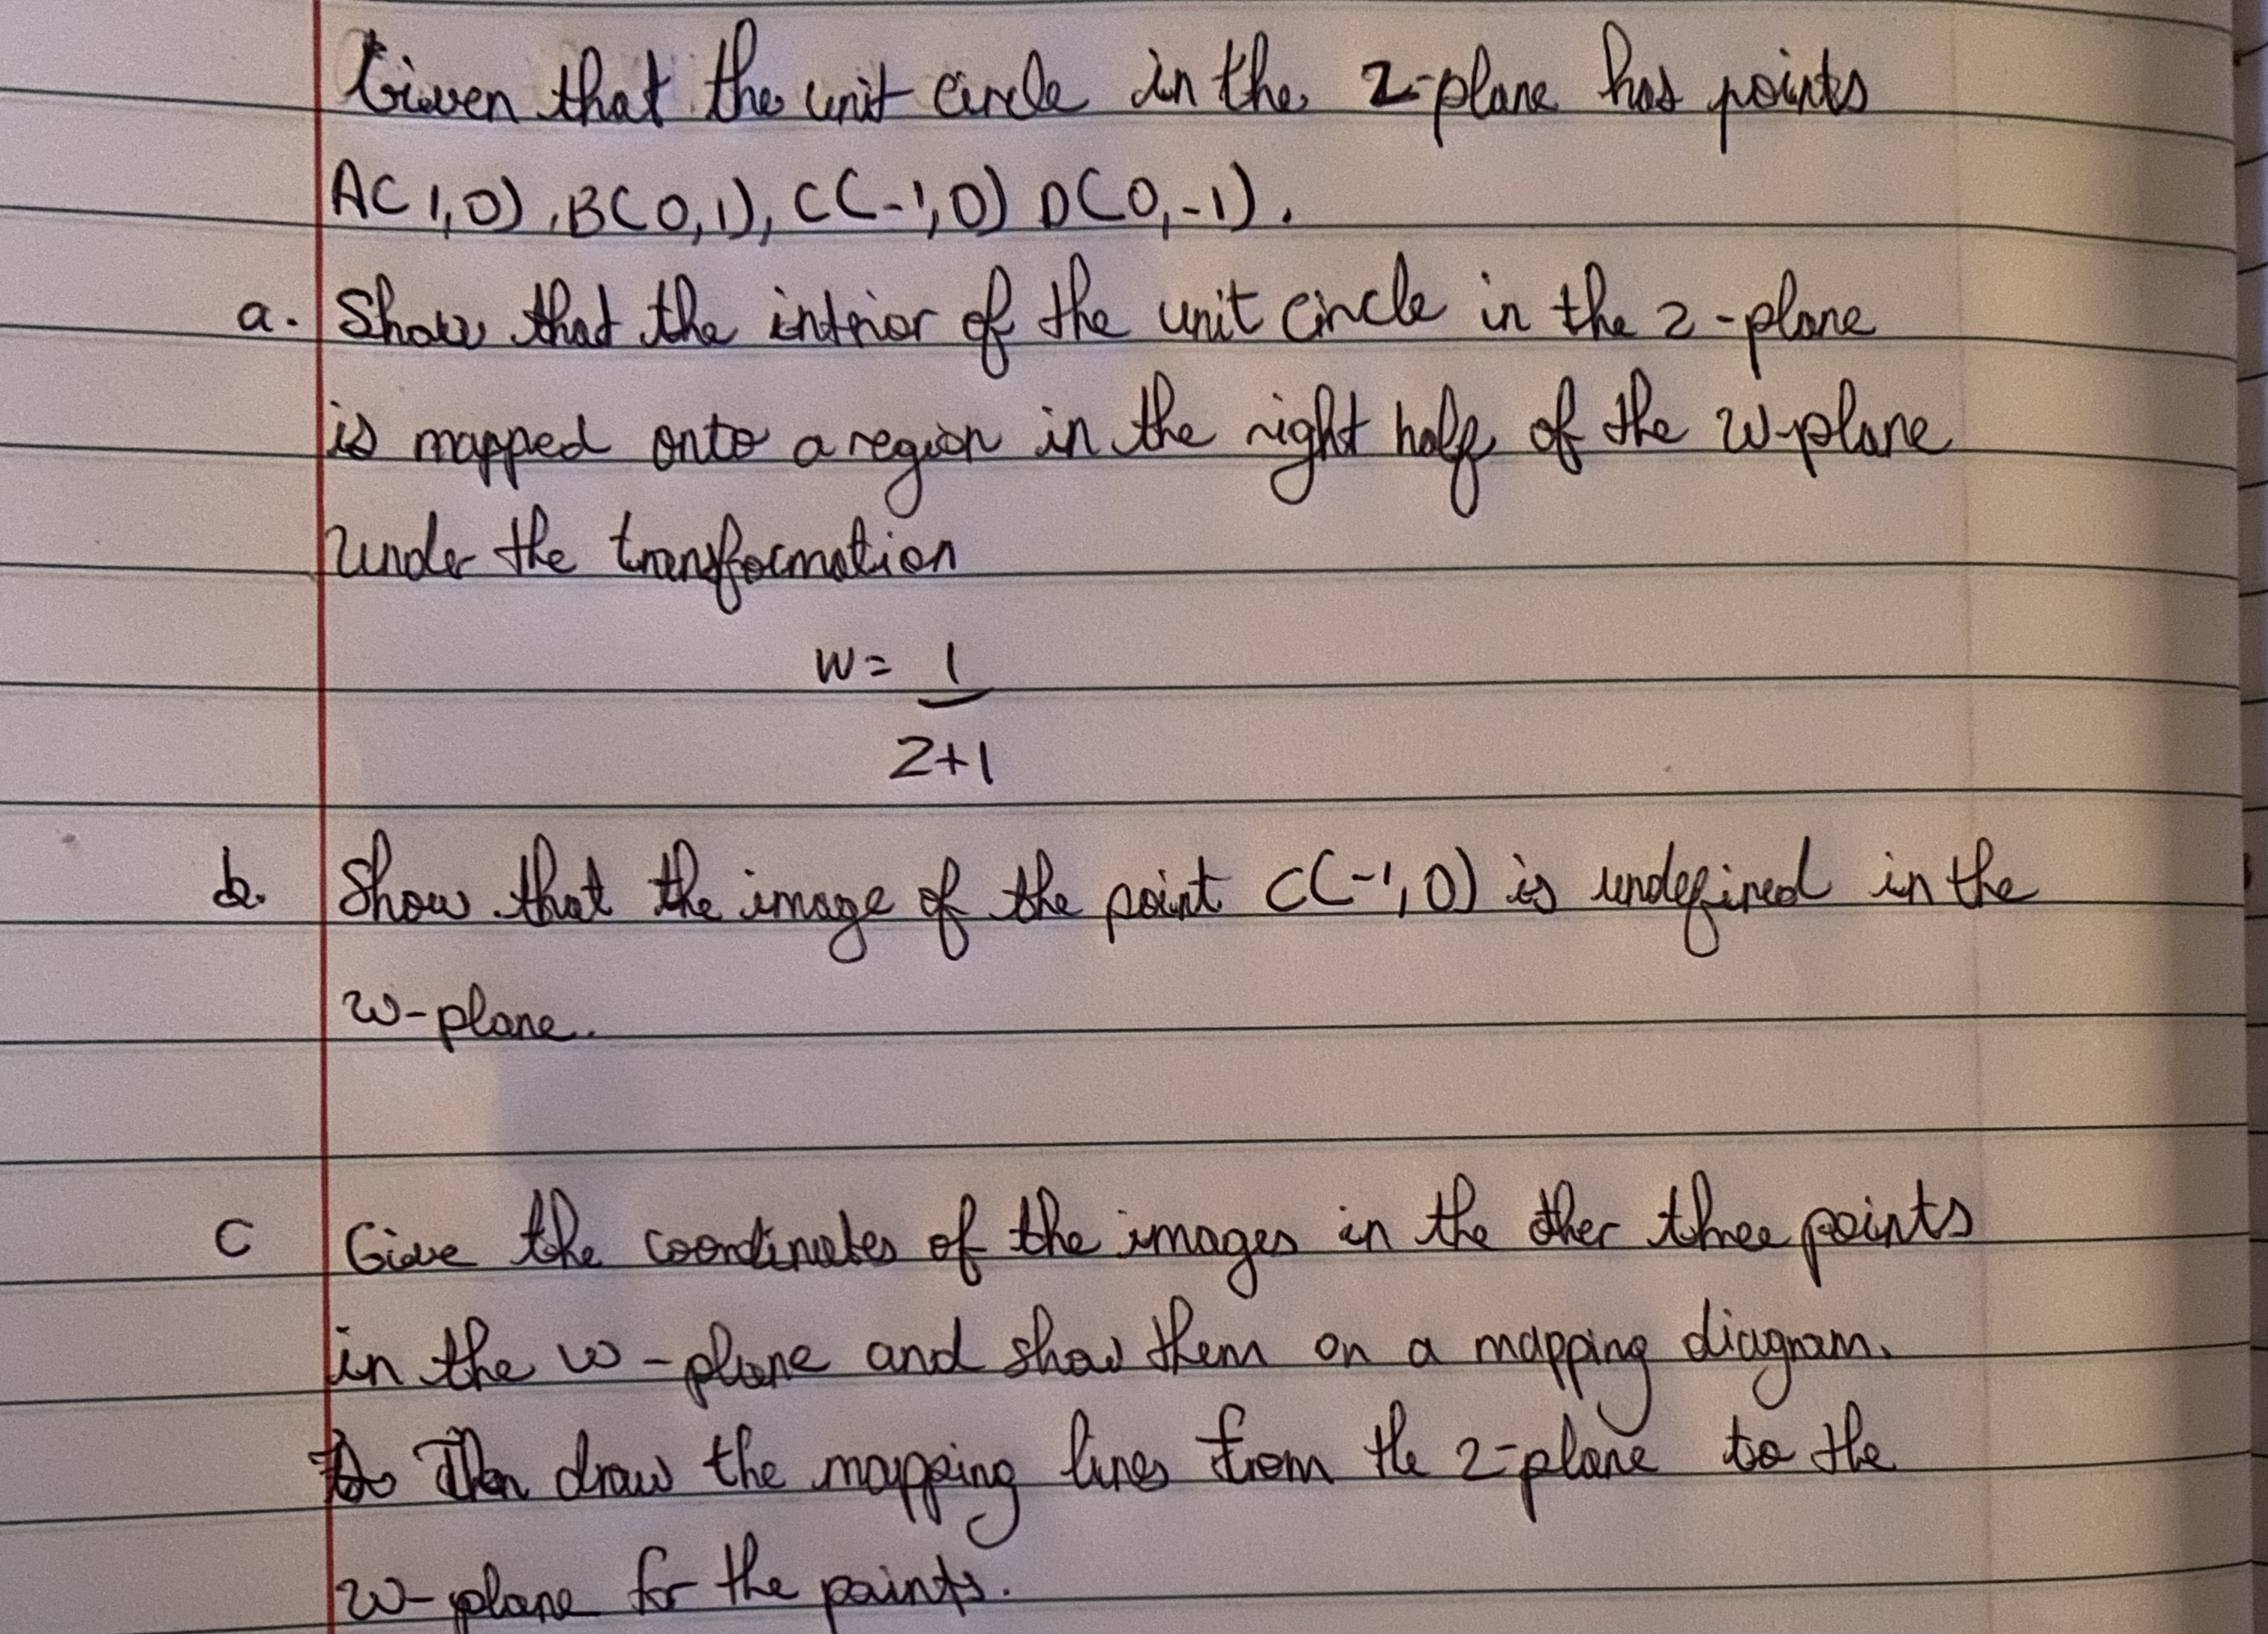 Given that the unit circle in the z-plane has points
A(1,0), B(0,1), C(-1,0) D(0,-1).
a. Show that the intrior of the unit circle in the z-plane
is mapped onto a region in the right half of the w-plane
under the transformation
w= 1
z+1
b. Show that the image of the point C(-1,0) is undefined in the
w-plane.
c Give the coordinates of the images in the other three points
in the w-plane and show them on a mapping diagram.
Then draw the mapping lines from the z-plane to the
w-plane for the points.